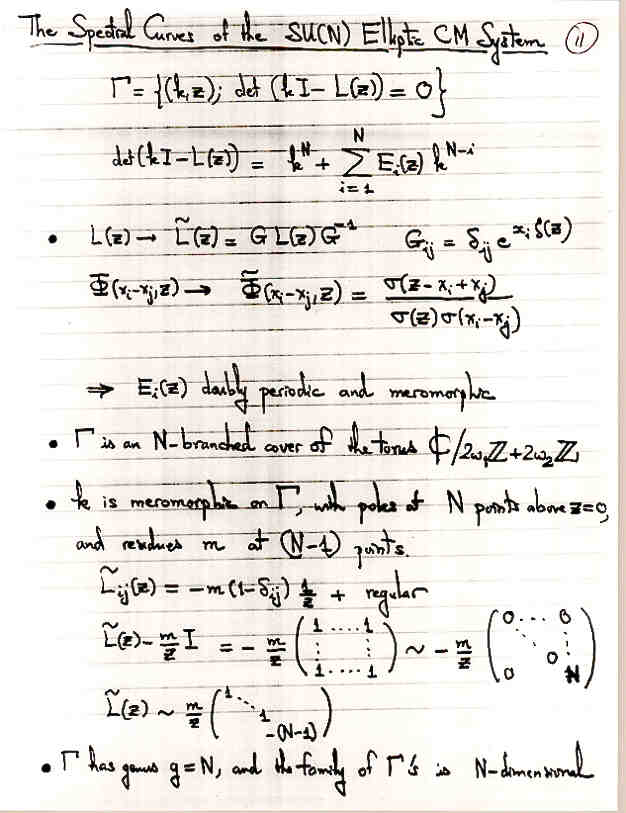 The Spectral Curves of the SU(N) Elliptic CM System 11
Γ = {(k,z); det (kI - L(z)) = 0}
det(kI - L(z)) = k^N + Σ_{i=1}^{N} E_i(z) k^{N-i}
• L(z) → L̃(z) = G L(z) G^{-1} G_ij = δ_ij e^{x_i ζ(z)}
Φ(x_i-x_j, z) → Φ̃(x_i-x_j, z) = σ(z - x_i + x_j) / σ(z) σ(x_i-x_j)
⇒ E_i(z) doubly periodic and meromorphic
• Γ is an N-branched cover of the torus ℂ/2ω₁ℤ+2ω₂ℤ
• k is meromorphic on Γ, with poles at N points above z=0,
and residues m at (N-1) points.
L̃_ij(z) = -m (1-δ_ij) 1/z + regular
L̃(z) - m/z I = - m/z ( 1 .... 1 ⋮ ⋮ 1 .... 1 ) ~ - m/z ( 0 .... 0 ⋱ ⋮ 0 0 N )
L̃(z) ~ m/z ( 1 ⋱ 1 -(N-1) )
• Γ has genus g = N, and the family of Γ's is N-dimensional